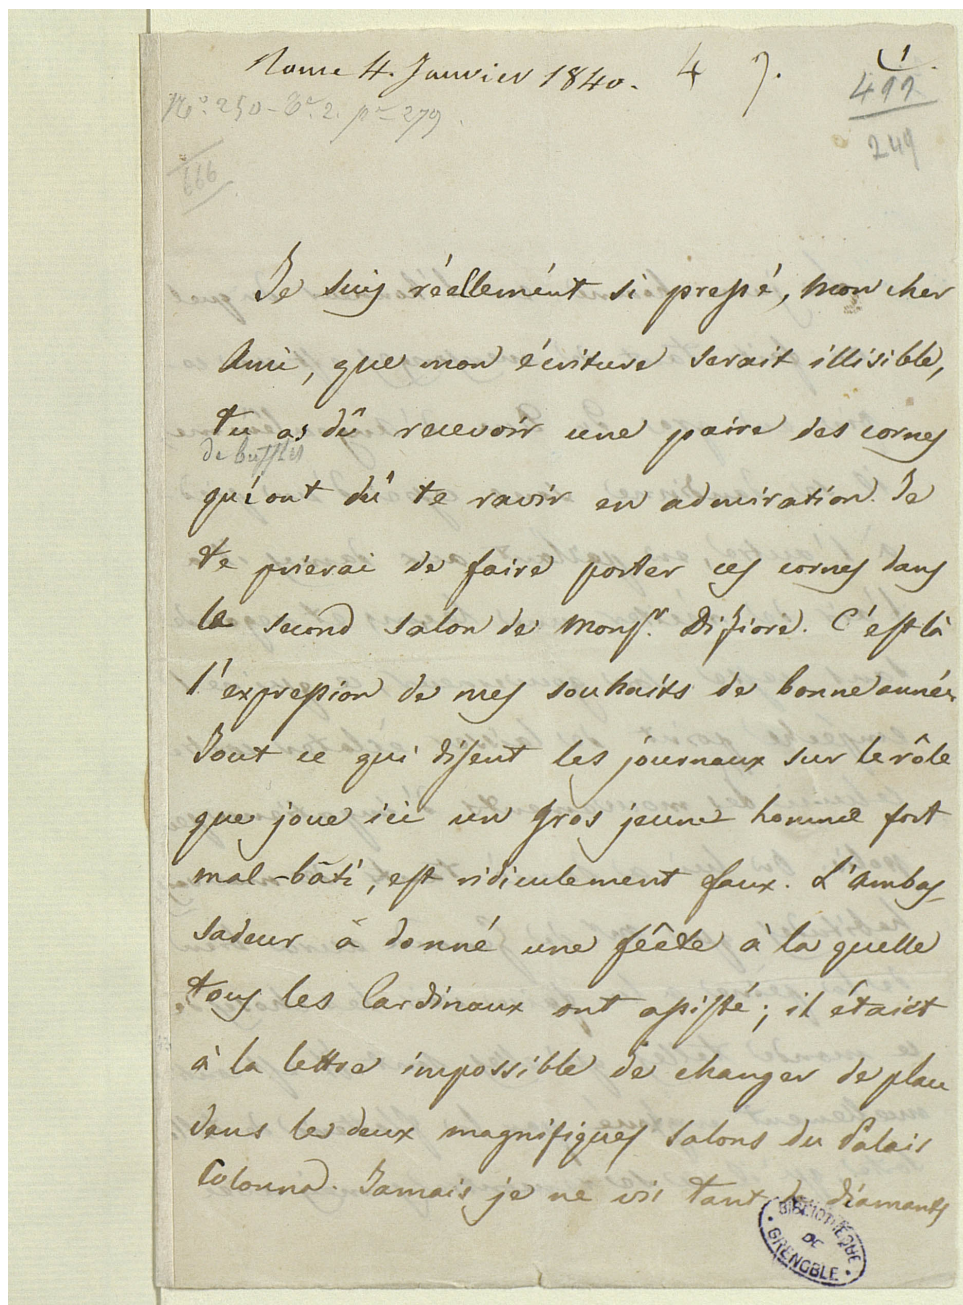 Rome 4. Janvier 1840. 4 7.
1
Nº. 250 - Tº. 2. pº 279.
499
249
666
Je suis réellemént si pressé, mon cher
Ami, que mon écriture serait illisible,
tu as dû recevoir une paire des cornes
de buffles
qui ont dû te ravir en admiration. Je
te prierai de faire porter ces cornes dans
le second salon de Monsr. Di Fiore. C'est là
l'expression de mes souhaits de bonne année.
Tout ce qui disent les journaux sur le rôle
que joue ici un gros jeune homme fort
mal-bâti, est ridiculement faux. L'Ambas-
sadeur à donné une fêête à la quelle
tous les Cardinaux ont assisté; il étaict
à la lettre impossible de changer de place
dans les deux magnifiques salons du Palais
Colonna. Jamais je ne vis tant de diamants
BIBLIOTHEQUE
DE
GRENOBLE